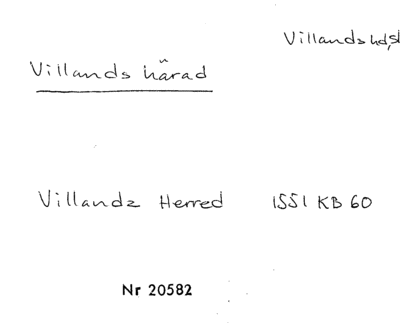 Villandshd, Sk
Villands härad
Villandz Herred 1551 KB 60
Nr 20582